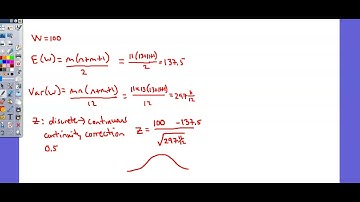 W = 100
E(W) = m(n+m+1)/2 = 11(13+11+1)/2 = 137.5
Var(W) = mn(n+m+1)/12 = 11×13(13+11+1)/12 = 297 11/12
Z : discrete → continuous
continuity correction
0.5
Z = 100 -137.5 / √297 11/12